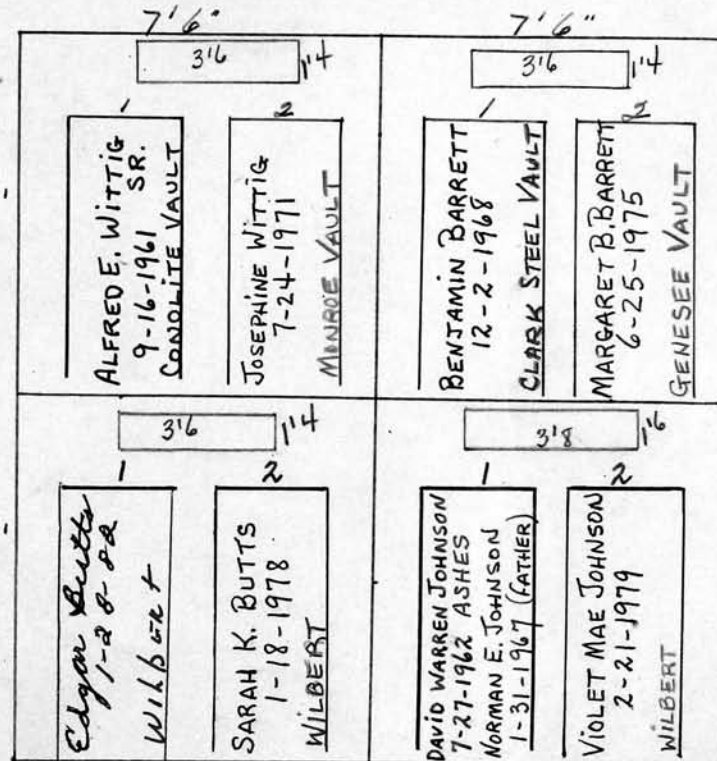 7'6"
7'6"
3'6
1'4
3'6
1'4
1
2
1
2
ALFRED E. WITTIG
SR.
9-16-1961
CONOLITE VAULT
JOSEPHINE WITTIG
7-24-1971
MONROE VAULT
BENJAMIN BARRETT
12-2-1968
CLARK STEEL VAULT
MARGARET B. BARRETT
6-25-1975
GENESEE VAULT
3'6
1'4
3'8
1'6
1
2
1
2
Edgar Butts
1-28-82
Wilbert
SARAH K. BUTTS
1-18-1978
WILBERT
DAVID WARREN JOHNSON
7-27-1962 ASHES
NORMAN E. JOHNSON
1-31-1967 (FATHER)
VIOLET MAE JOHNSON
2-21-1979
WILBERT